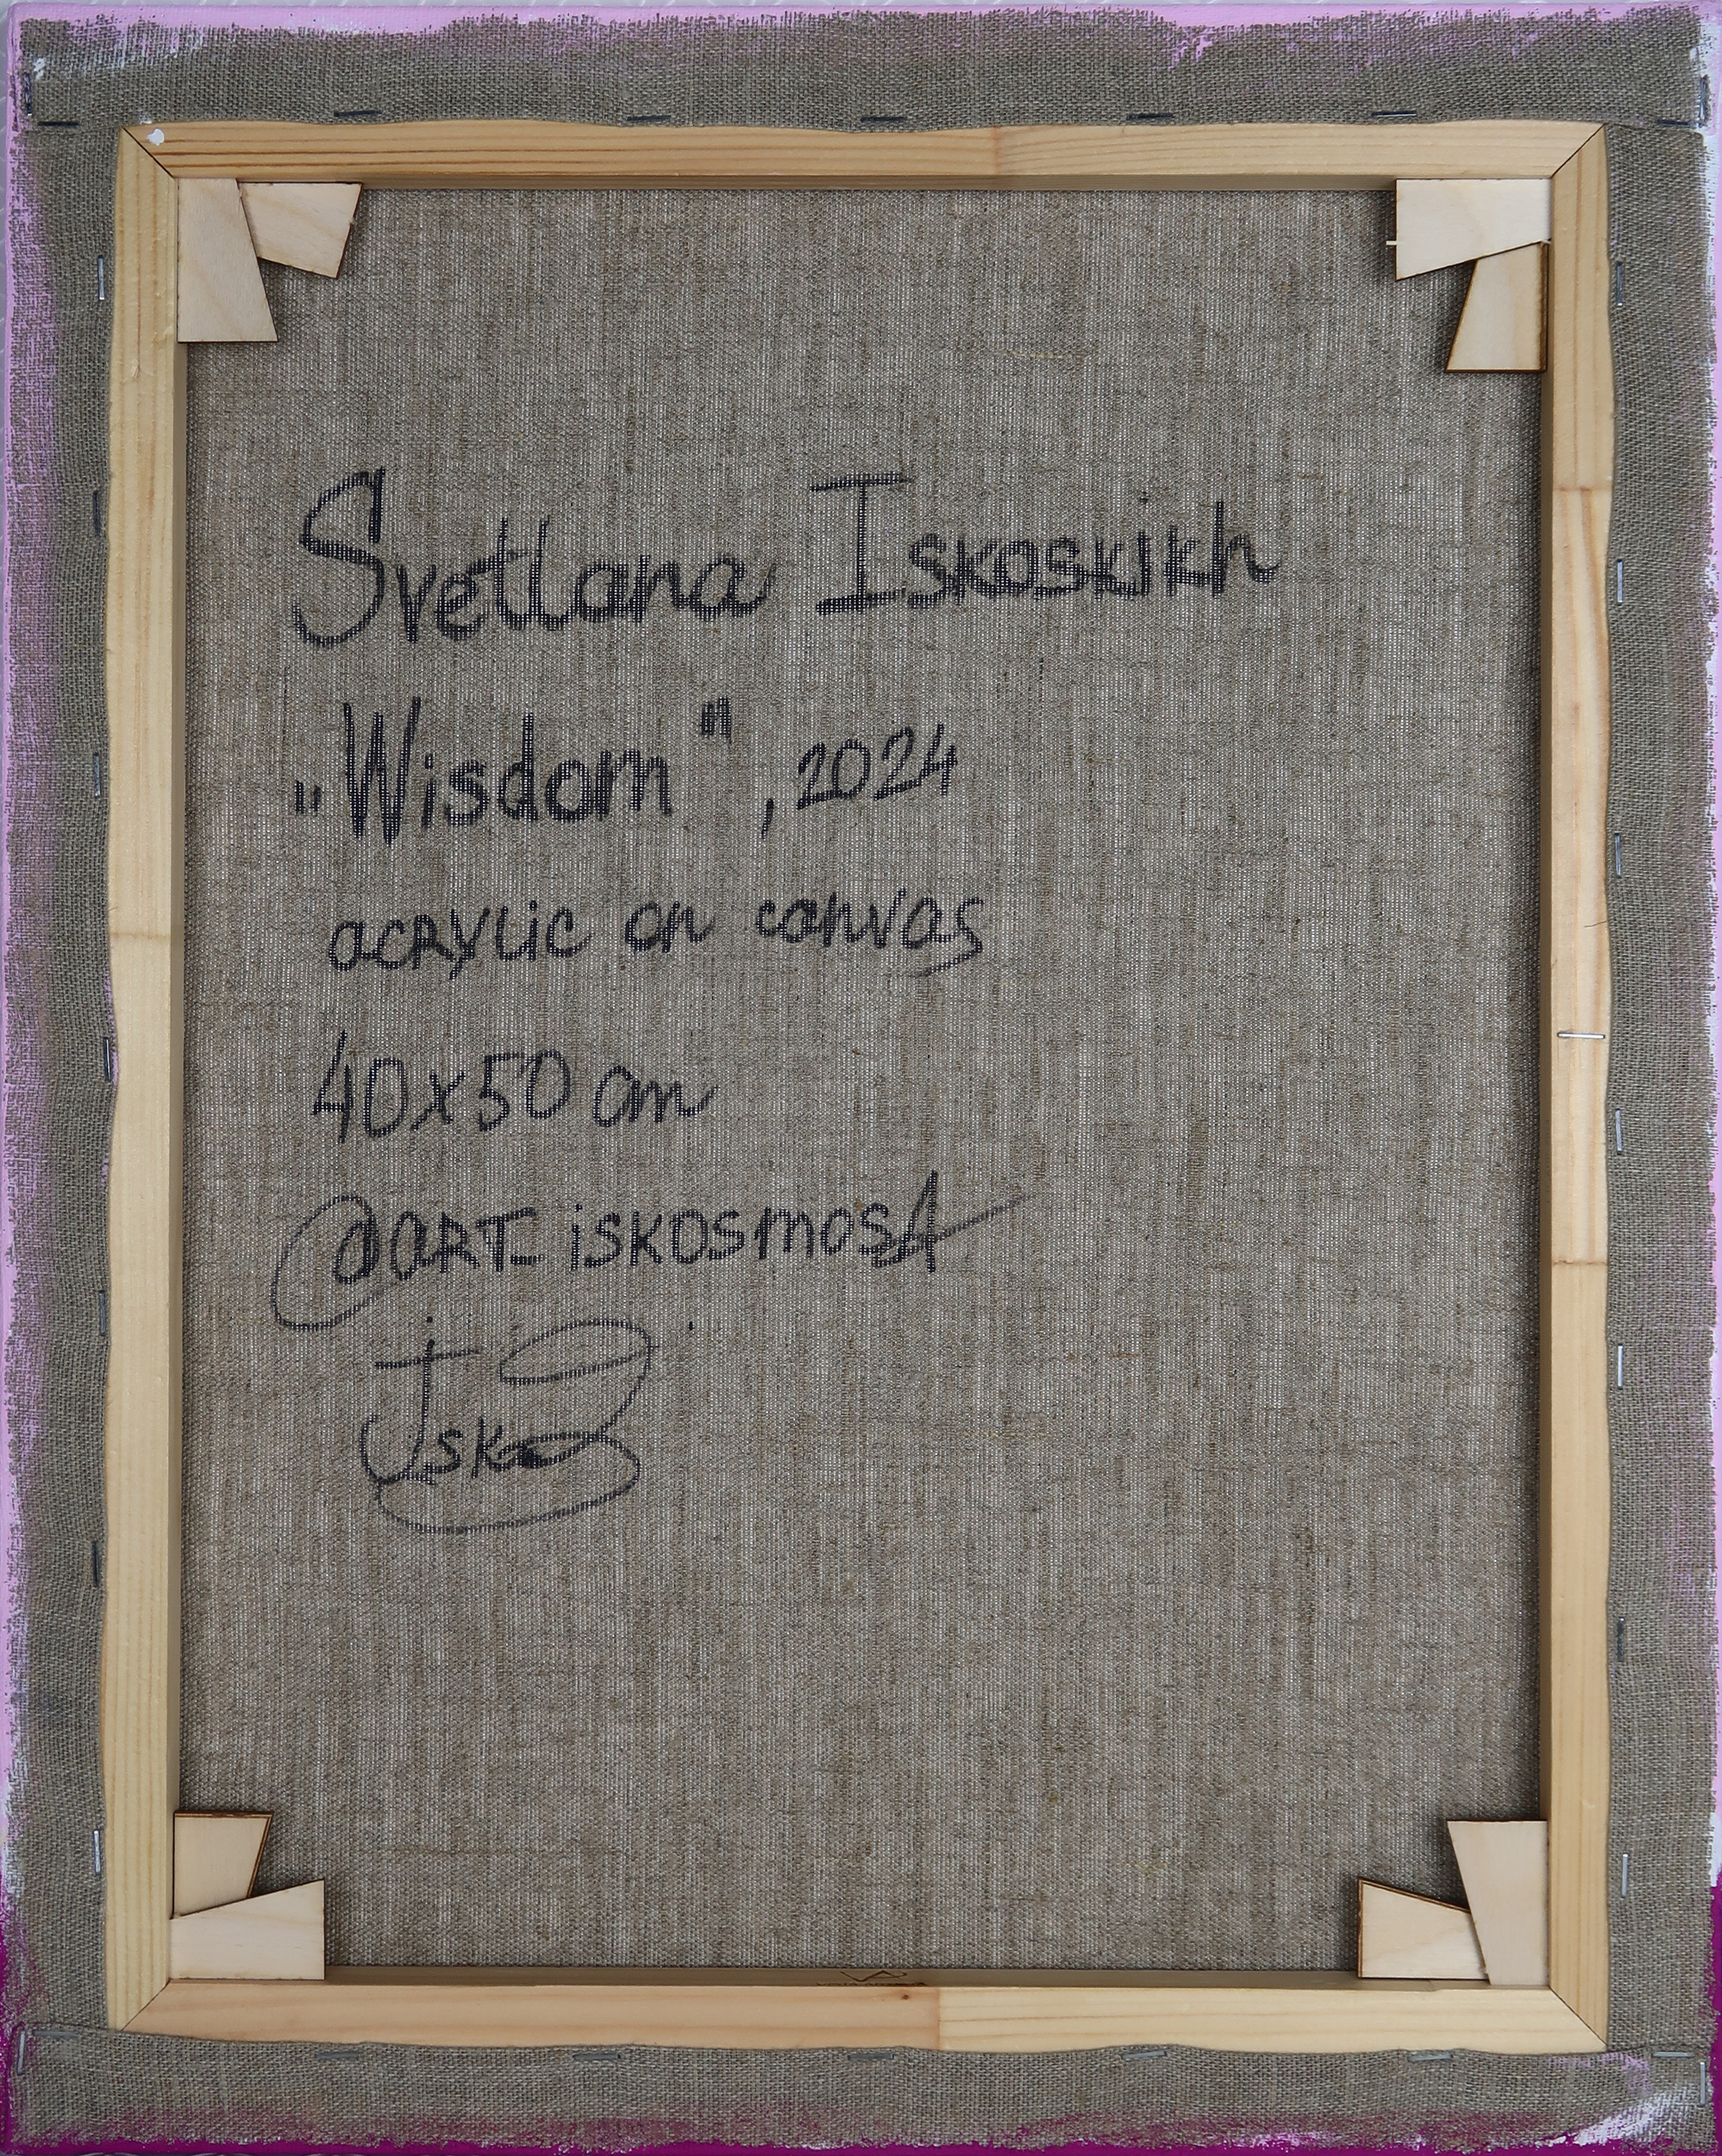 Svetlana Iskoskikh
„Wisdom", 2024
acrylic on canvas
40x50 cm
@art_iskosmos1
Isko